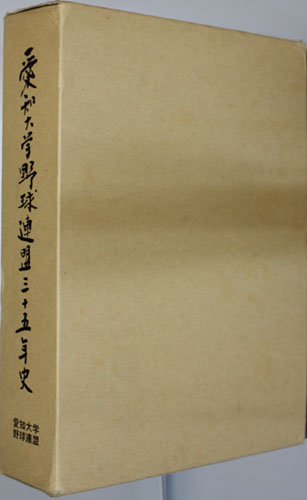 愛知大学野球連盟三十五年史
愛知大学
野球連盟